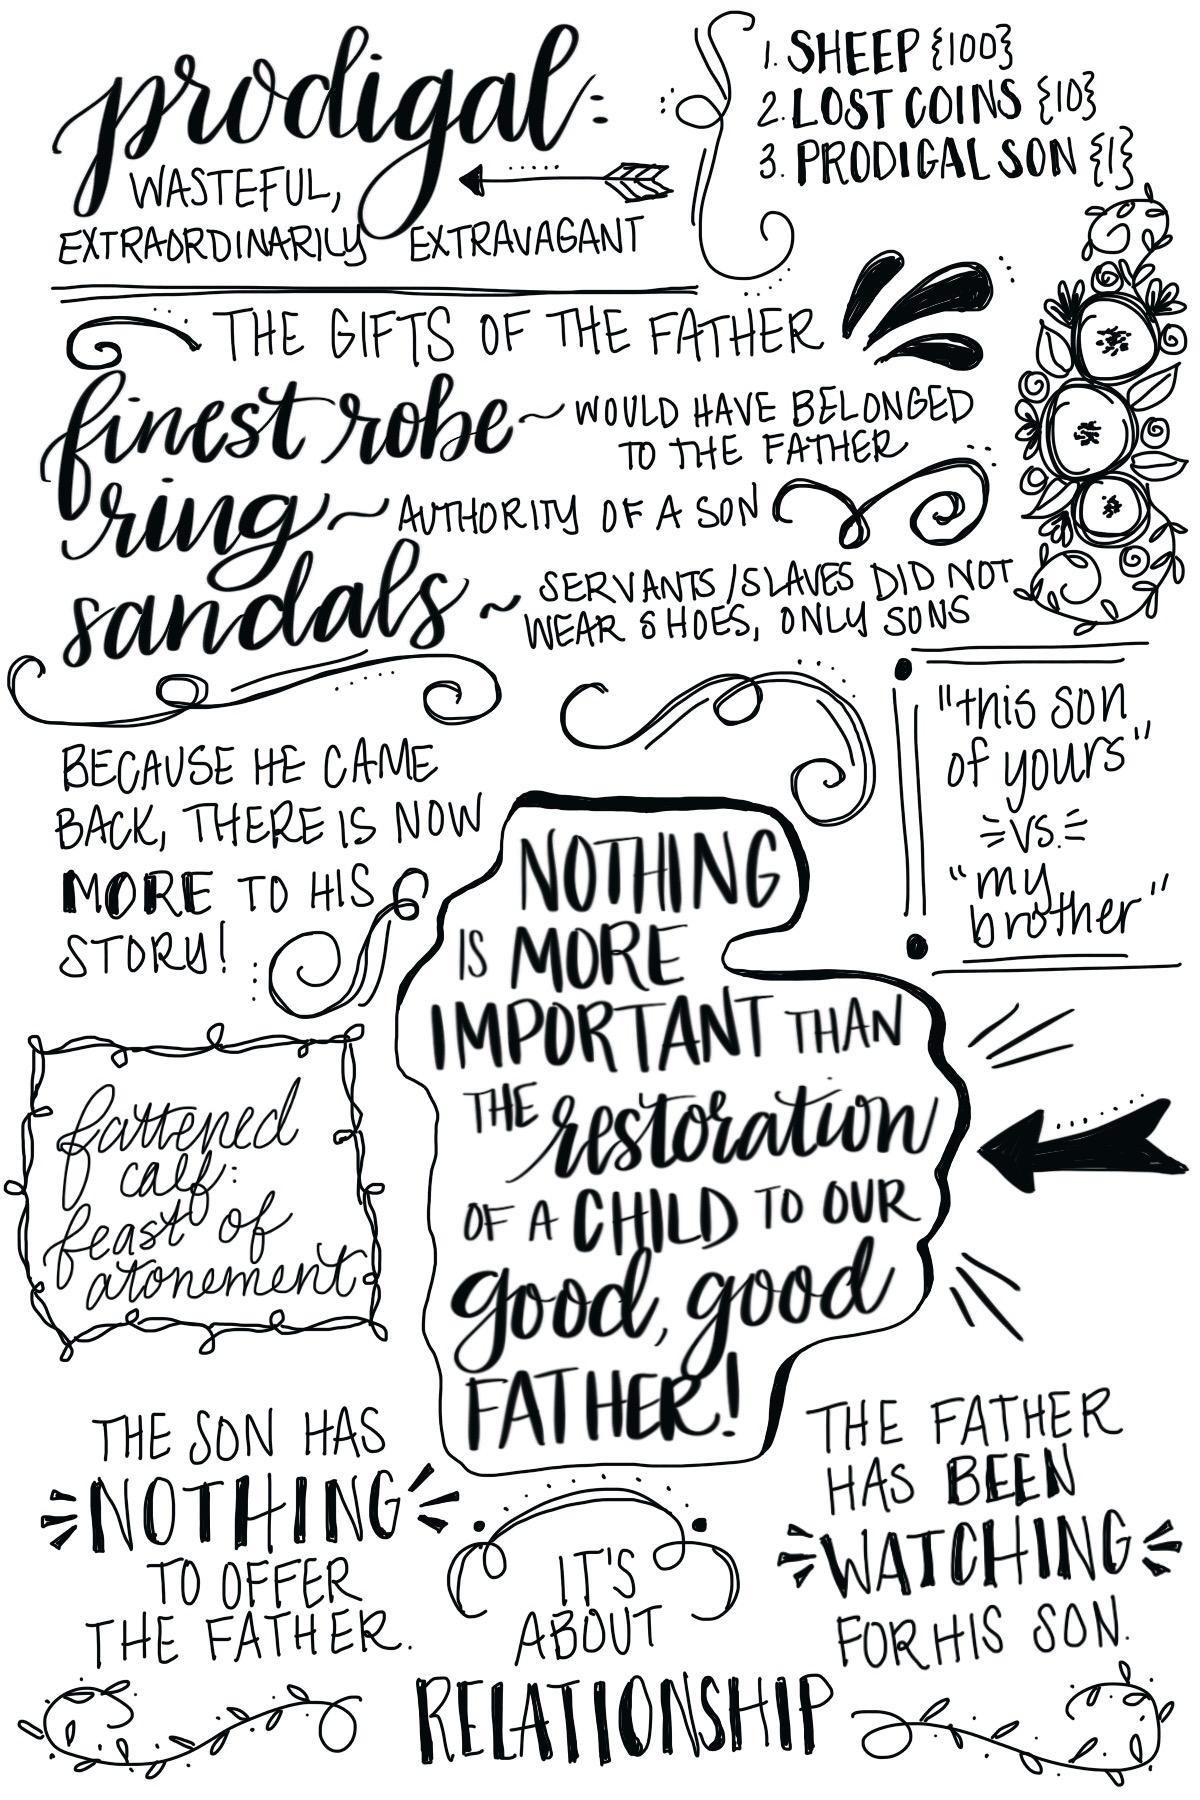 prodigal:
WASTEFUL,
EXTRAORDINARILY EXTRAVAGANT
1. SHEEP {100}
2. LOST COINS {10}
3. PRODIGAL SON {1}
THE GIFTS OF THE FATHER
finest robe ~ WOULD HAVE BELONGED
TO THE FATHER
ring ~ AUTHORITY OF A SON
sandals ~ SERVANTS/SLAVES DID NOT
WEAR SHOES, ONLY SONS
"this son
of yours"
VS.
"my
brother"
BECAUSE HE CAME
BACK, THERE IS NOW
MORE TO HIS
STORY!
NOTHING
IS MORE
IMPORTANT THAN
THE restoration
OF A CHILD TO OUR
good, good
FATHER!
fattened
calf:
feast of
atonement
THE SON HAS
NOTHING
TO OFFER
THE FATHER.
IT'S
ABOUT
RELATIONSHIP
THE FATHER
HAS BEEN
WATCHING
FOR HIS SON.